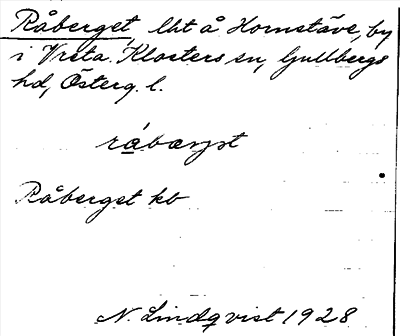 Råberget lht å Hornstäve, by
i Vreta Klosters sn, Gullbergs
hd, Österg. l.
råbærjet
Råberget kb
N. Lindqvist 1928